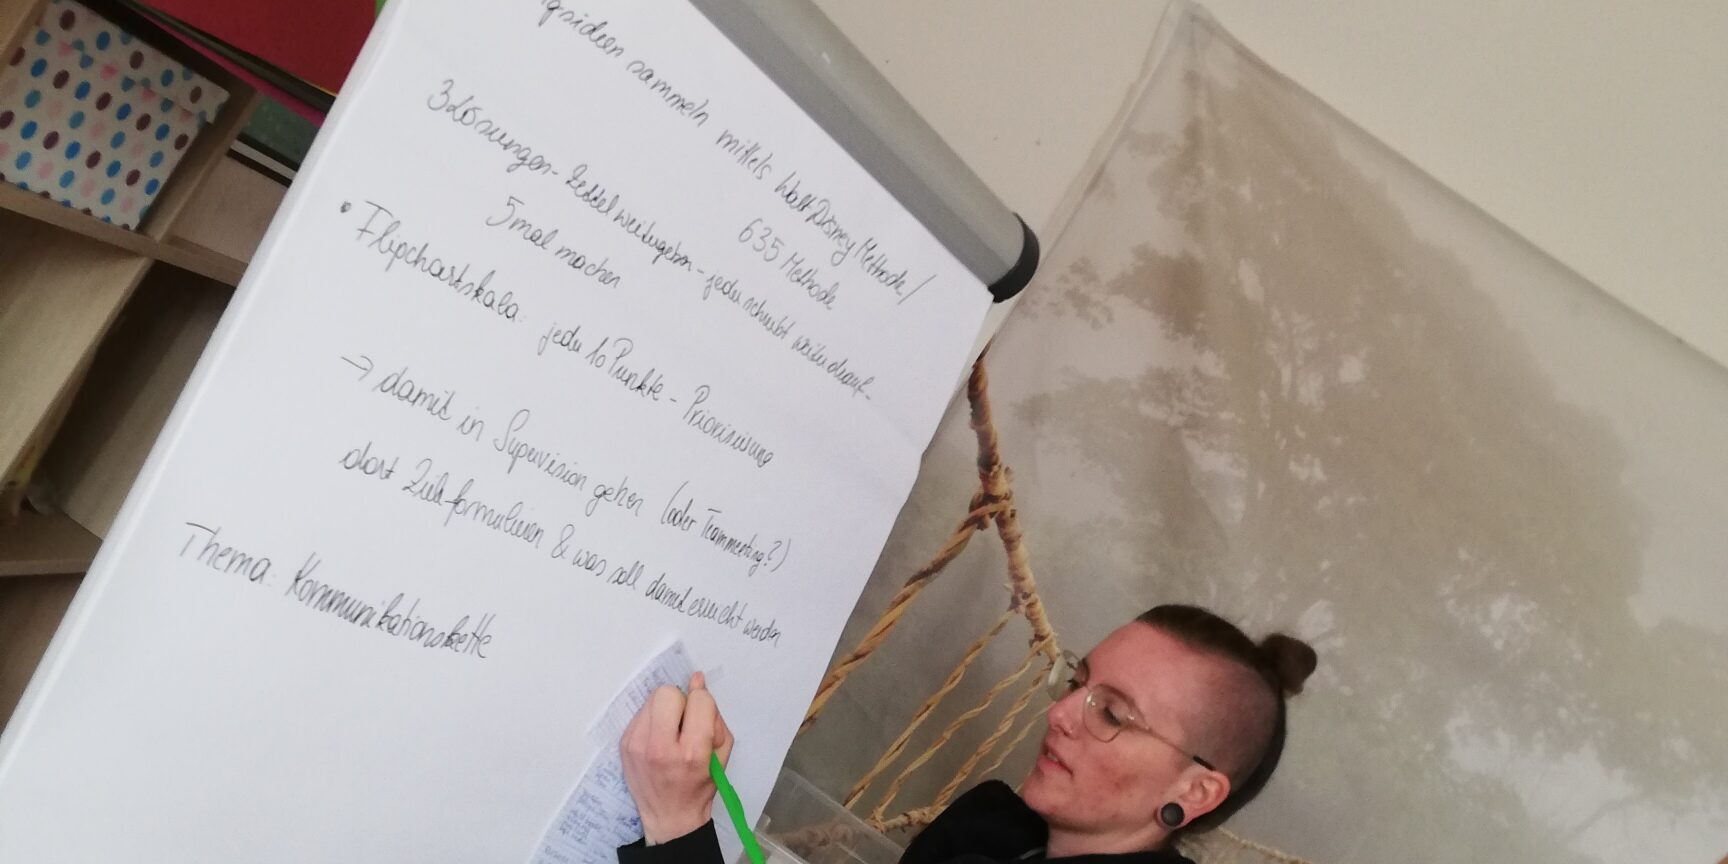 sammeln mittels Walt Disney Methode /
635 Methode
3 Lösungen - Zettel weitergeben - jeder schreibt weiter drauf -
5 mal machen
• Flipchartskala: jeder 10 Punkte - Priorisierung
→ damit in Supervision gehen (oder Teammeeting?)
dort Ziele formulieren & was soll damit erreicht werden
Thema: Kommunikationskette